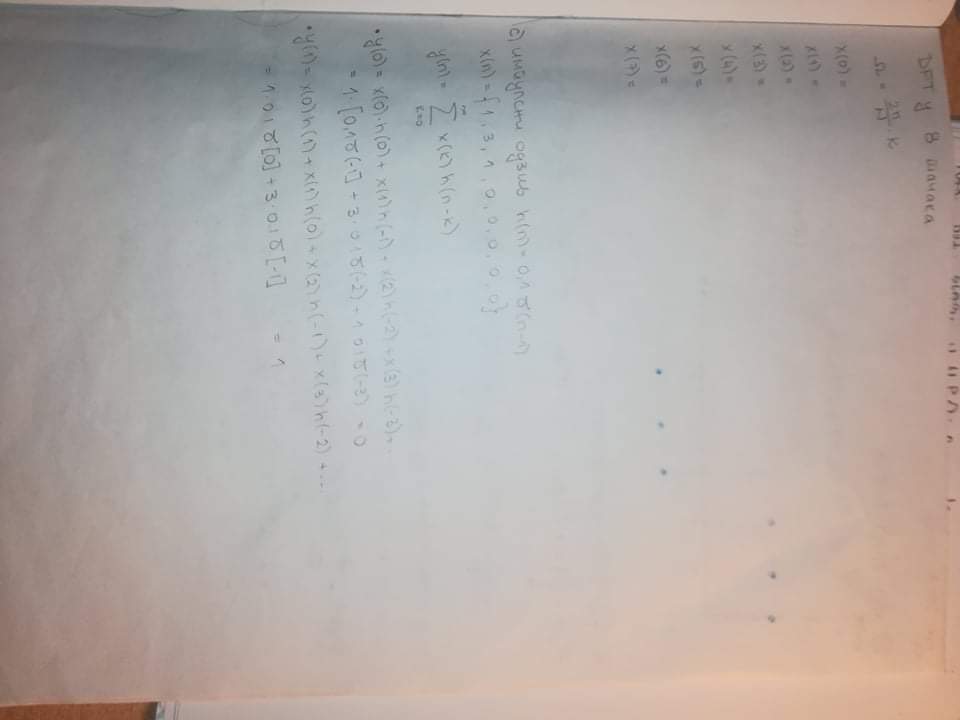 ДФТ у 8 тачака
Ω = 2π/N · k
X(0) =
X(1) =
X(2) =
X(3) =
X(4) =
X(5) =
X(6) =
X(7) =
c) импулсни одзив h(n) = 0,1 δ(n-1)
x(n) = {1, 3, 1, 0, 0, 0, 0, 0}
y(n) = ∑_{k=0}^{∞} x(k) h(n-k)
• y(0) = x(0)·h(0) + x(1)h(-1) + x(2)h(-2) + x(3)h(-3)+..
= 1·[0,1 δ(-1] + 3·0,1 δ(-2) + 1·0,1 δ(-3) = 0
• y(1) = x(0)h(1) + x(1)h(0) + x(2)h(-1) + x(3)h(-2) + ...
= 1·0,1 δ[0] + 3·0,1 δ[-1] = 1